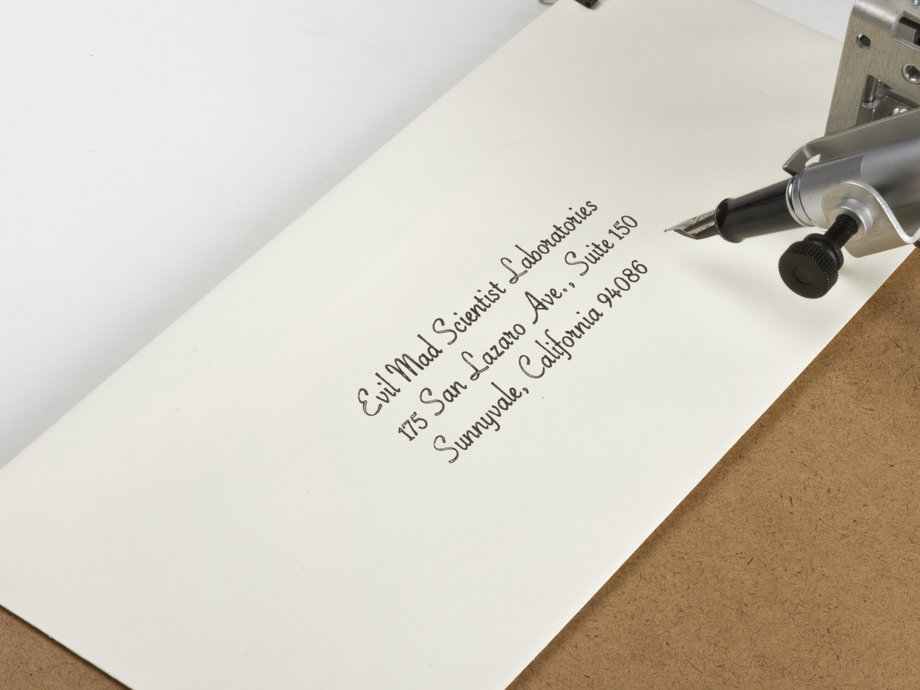 Evil Mad Scientist Laboratories
175 San Lazaro Ave., Suite 150
Sunnyvale, California 94086